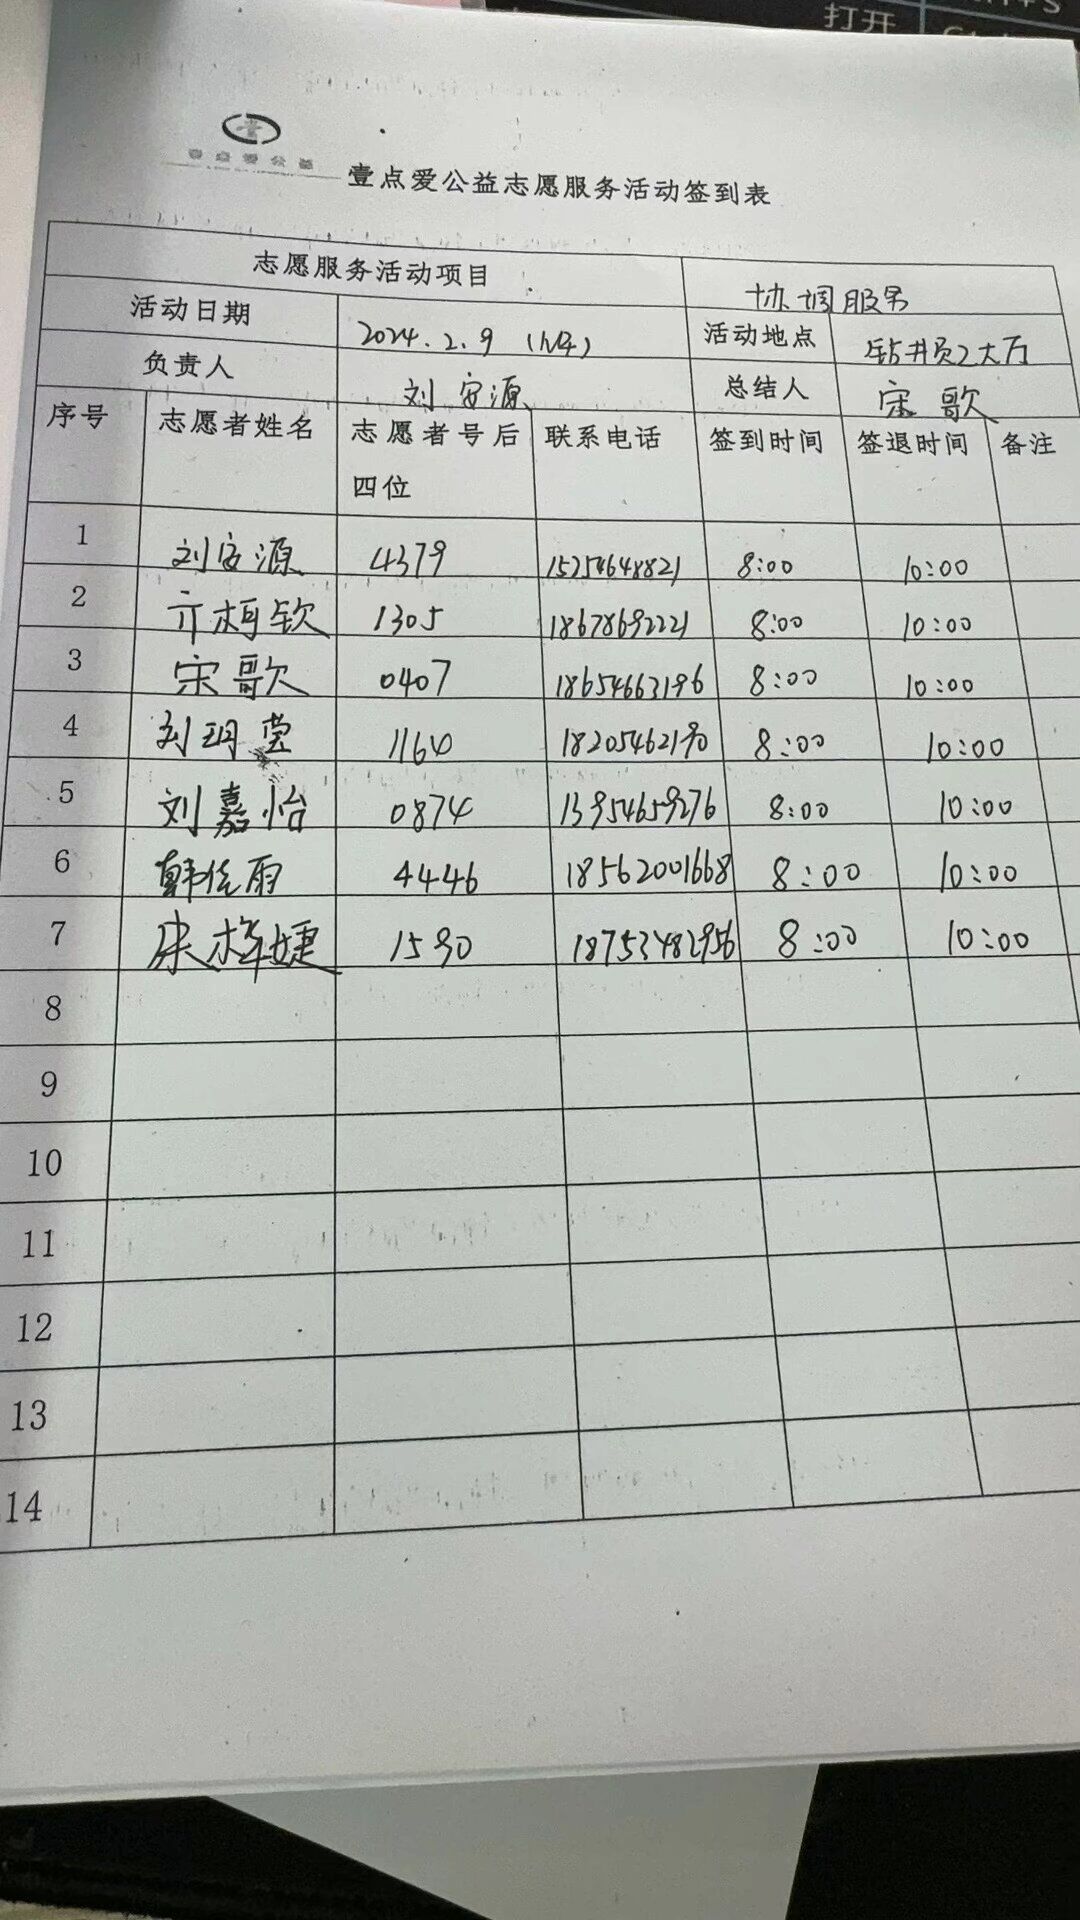 打开
壹点爱公益
壹点爱公益志愿服务活动签到表
志愿服务活动项目 协调服务
活动日期 2024.2.9 活动地点 大厅
负责人 刘安源 总结人 宋歌
序号 志愿者姓名 志愿者号后四位 联系电话 签到时间 签退时间 备注
1 刘安源 4379 15254648821 8:00 10:00
2 亓柯钦 1305 18678692221 8:00 10:00
3 宋歌 0407 18654663196 8:00 10:00
4 刘玥莹 1164 18205462190 8:00 10:00
5 刘嘉怡 0874 13954659276 8:00 10:00
6 韩佳雨 4446 18562001668 8:00 10:00
7 1590 18753482956 8:00 10:00
8
9
10
11
12
13
14